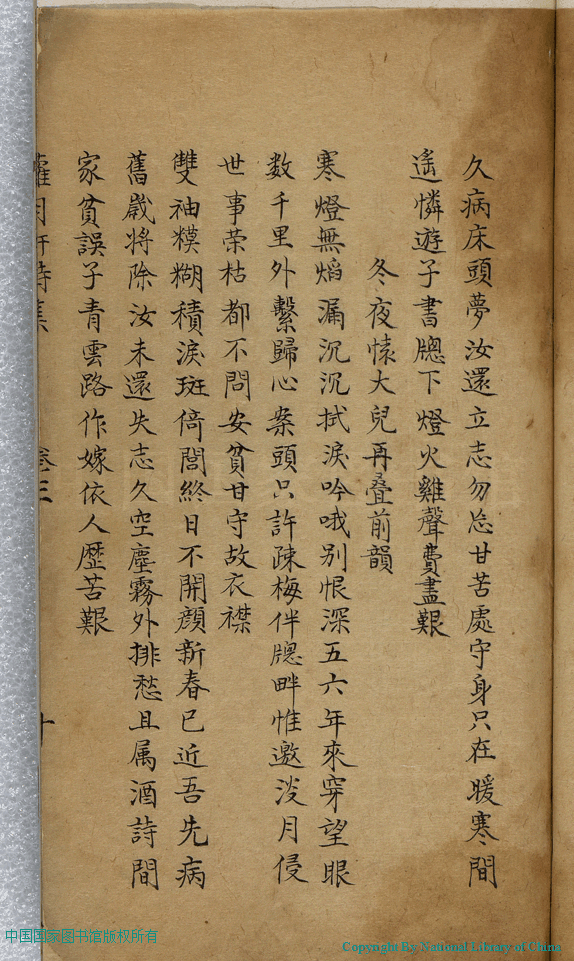 久病床頭夢汝還立志勿忘甘苦處守身只在暖寒間
遥憐遊子書牕下燈火雞聲費盡艱
冬夜懐大兒再叠前韻
寒燈無熖漏沉沉拭淚吟哦别恨深五六年來穿望眼
数千里外繫歸心案頭只許疎梅伴牕畔惟邀淡月侵
世事荣枯都不問安貧甘守故衣襟
雙袖糢糊積淚斑倚閭終日不開顔新春已近吾先病
舊歳將除汝未還失志久空塵霧外排愁且属酒詩間
家貧誤子青雲路作嫁依人歴苦艱
詩集 卷三 十
中国国家图书馆版权所有
Copyright By National Library of China